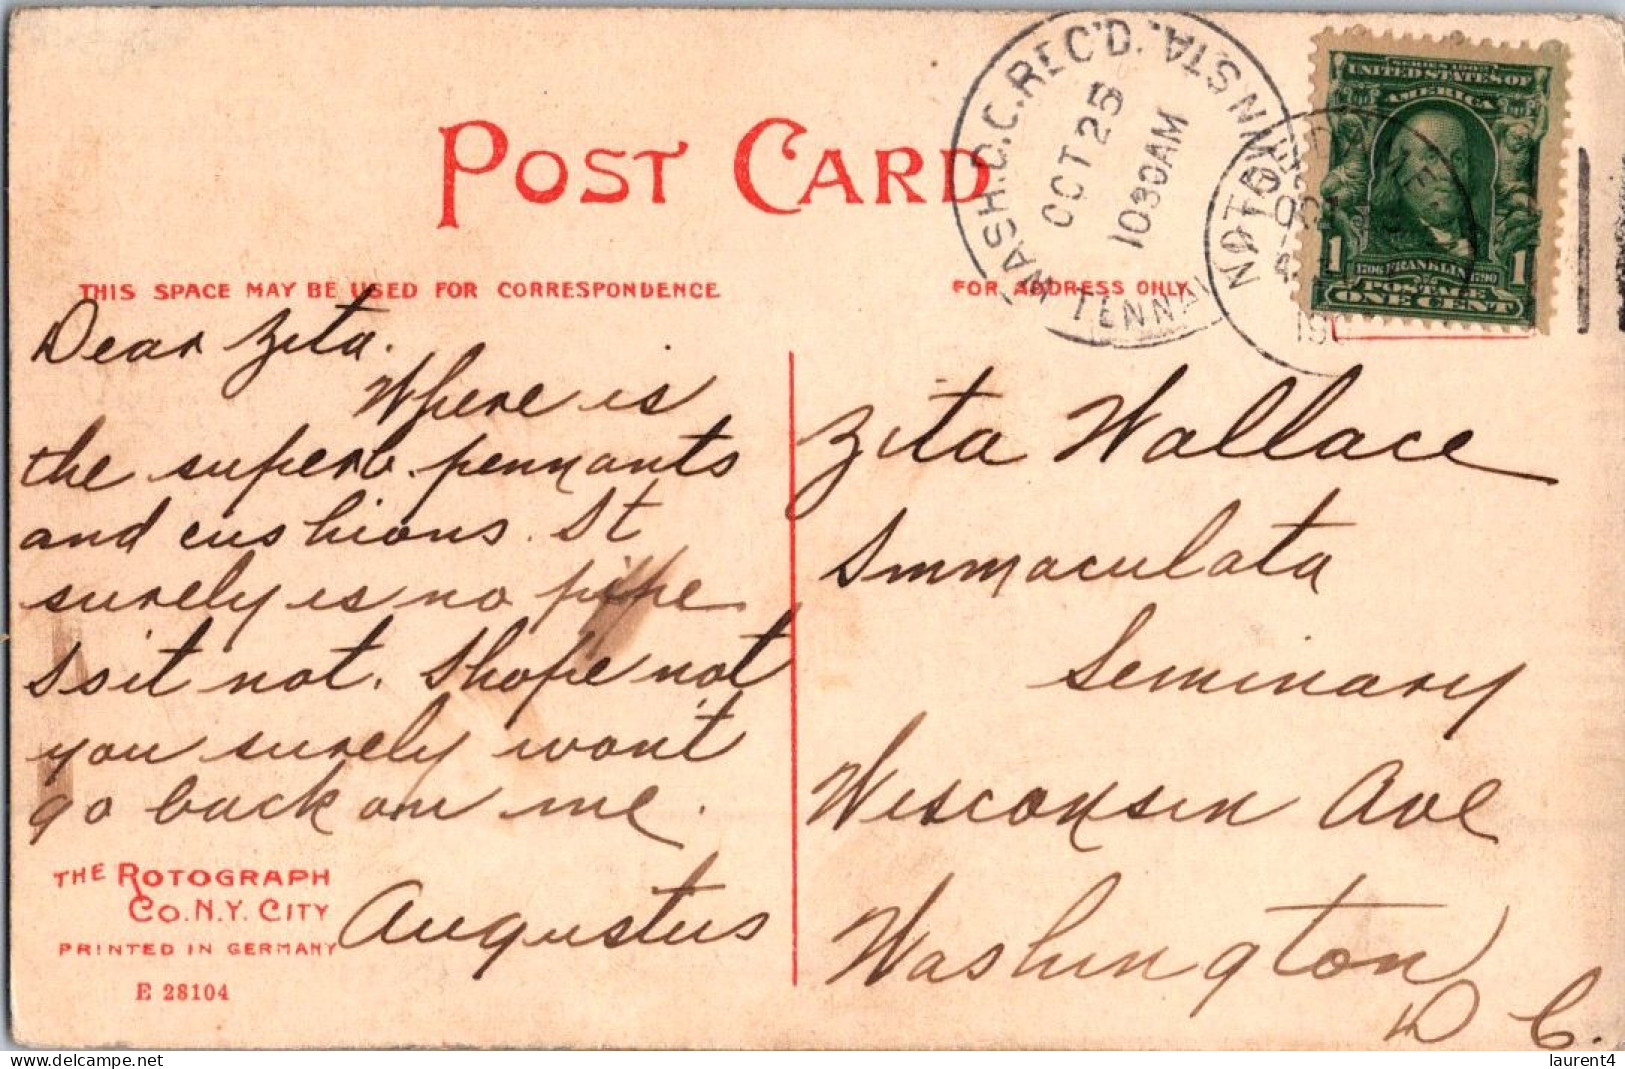 POST CARD
THIS SPACE MAY BE USED FOR CORRESPONDENCE
FOR ADDRESS ONLY
WASH. D.C. REC'D.
OCT 25
1030 AM
TENNALLYTOWN STA.
NOTRE DAME
OCT
SERIES 1902
UNITED STATES OF
AMERICA
1706 FRANKLIN 1790
1 1
POSTAGE
ONE CENT
Dear Zita.
Where is
the superb pennants
and cushions. It
surely is no pipe
Is it not. I hope not
you surely won't
go back on me.
Augustus
Zita Wallace
Immaculata
Seminary
Wisconsin Ave
Washington
D C.
THE ROTOGRAPH
CO. N.Y. CITY
PRINTED IN GERMANY
E 28104
laurent4